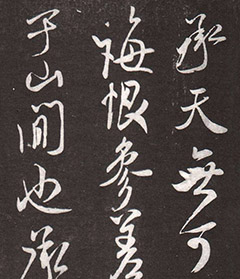 承天無可
悔恨參差
于山間也承